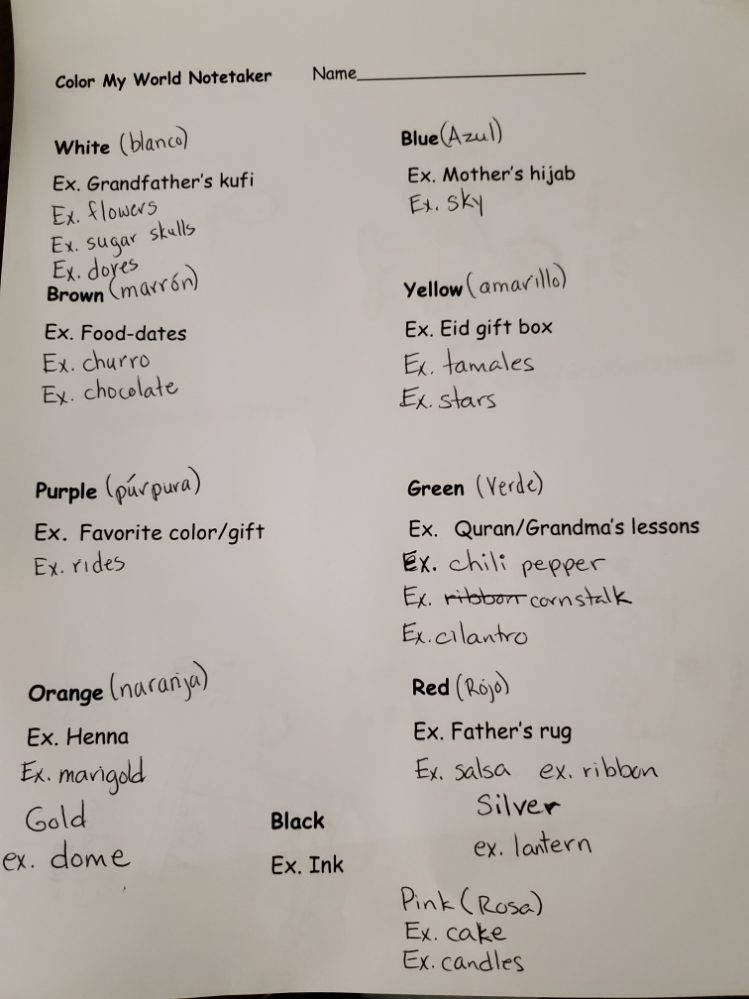 Color My World Notetaker Name
White (blanco)
Ex. Grandfather's kufi
Ex. flowers
Ex. sugar skulls
Ex. doves
Brown (marrón)
Ex. Food-dates
Ex. churro
Ex. chocolate
Purple (púrpura)
Ex. Favorite color/gift
Ex. rides
Orange (naranja)
Ex. Henna
Ex. marigold
Gold
ex. dome
Black
Ex. Ink
Blue (Azul)
Ex. Mother's hijab
Ex. sky
Yellow (amarillo)
Ex. Eid gift box
Ex. tamales
Ex. stars
Green (Verde)
Ex. Quran/Grandma's lessons
Ex. chili pepper
Ex. ribbon cornstalk
Ex. cilantro
Red (Rojo)
Ex. Father's rug
Ex. salsa ex. ribbon
Silver
ex. lantern
Pink (Rosa)
Ex. cake
Ex. candles